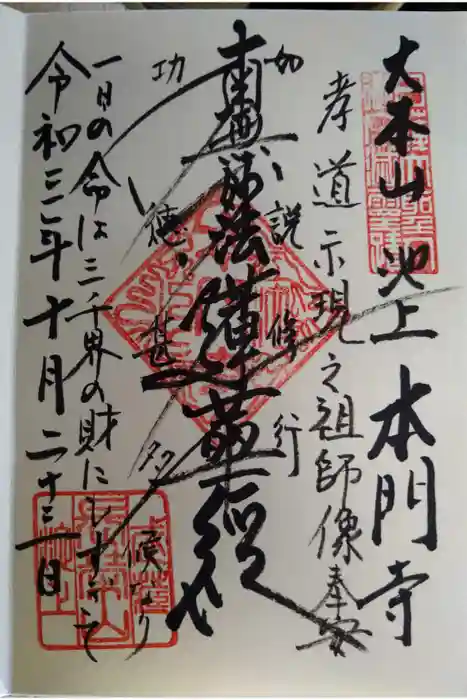 大本山 池上 本門寺
孝道示現之祖師像奉安
如説修行
南無妙法蓮華経
功徳甚多
一日の命は三千界の財にもすぎて候なり
令和三年十月二十三日